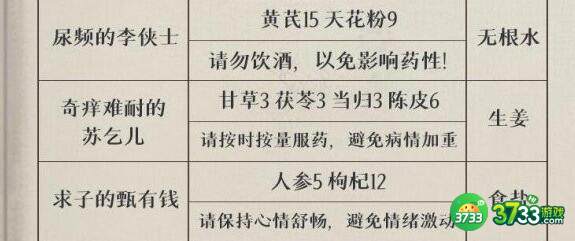 尿频的李侠士
黄芪15 天花粉9
请勿饮酒，以免影响药性!
无根水
奇痒难耐的
苏乞儿
甘草3 茯苓3 当归3 陈皮6
请按时按量服药，避免病情加重
生姜
求子的甄有钱
人参5 枸杞12
请保持心情舒畅，避免情绪激动
食盐
3733
3733游戏
.com